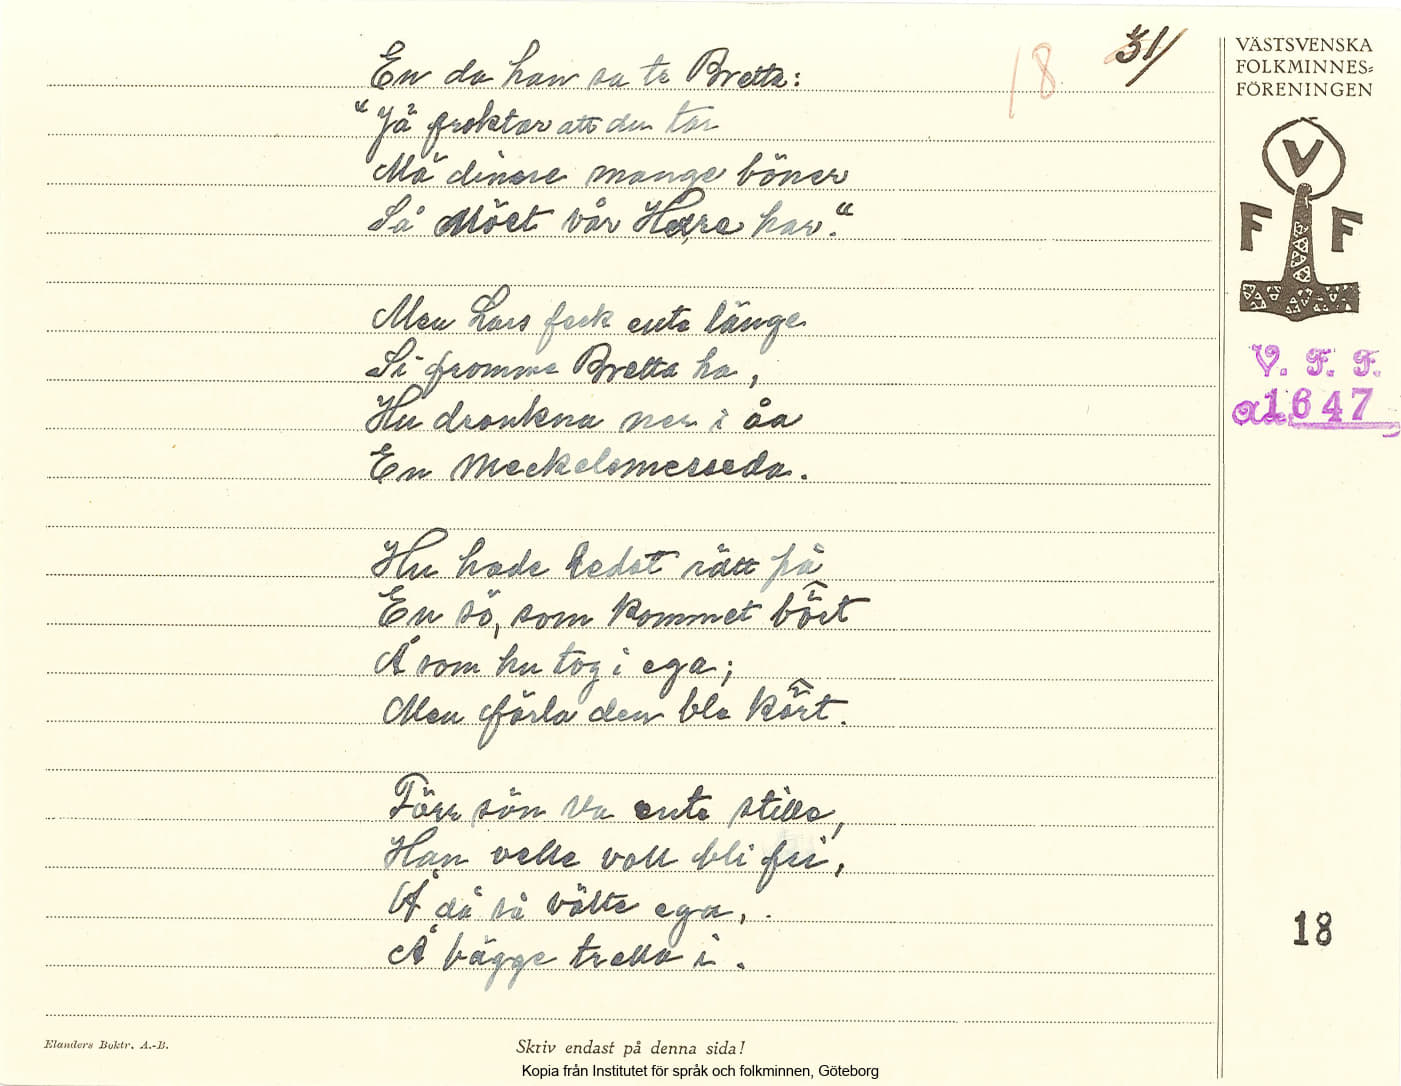 18
31/
VÄSTSVENSKA
FOLKMINNES=
FÖRENINGEN
V
F F
V. F. F.
1647
En da han sa te Bretta:
"Jä froktar att du tar
Mä dinne mange böner
Så Möet vår Herre har."
Men Lars feck ente länge
Si fromme Bretta ha,
Hu dronkna ner i åa
En Meckelsmesseda.
Hu hade ledat rätt på
En sö, som kommet bört
Å som hu tog i ega;
Men färla den ble kört.
Förr sön va ente stille,
Han velle voll bli fri,
Å då så välte ega,
Å bägge trella i.
18
Elanders Boktr. A.-B.
Skriv endast på denna sida!
Kopia från Institutet för språk och folkminnen, Göteborg